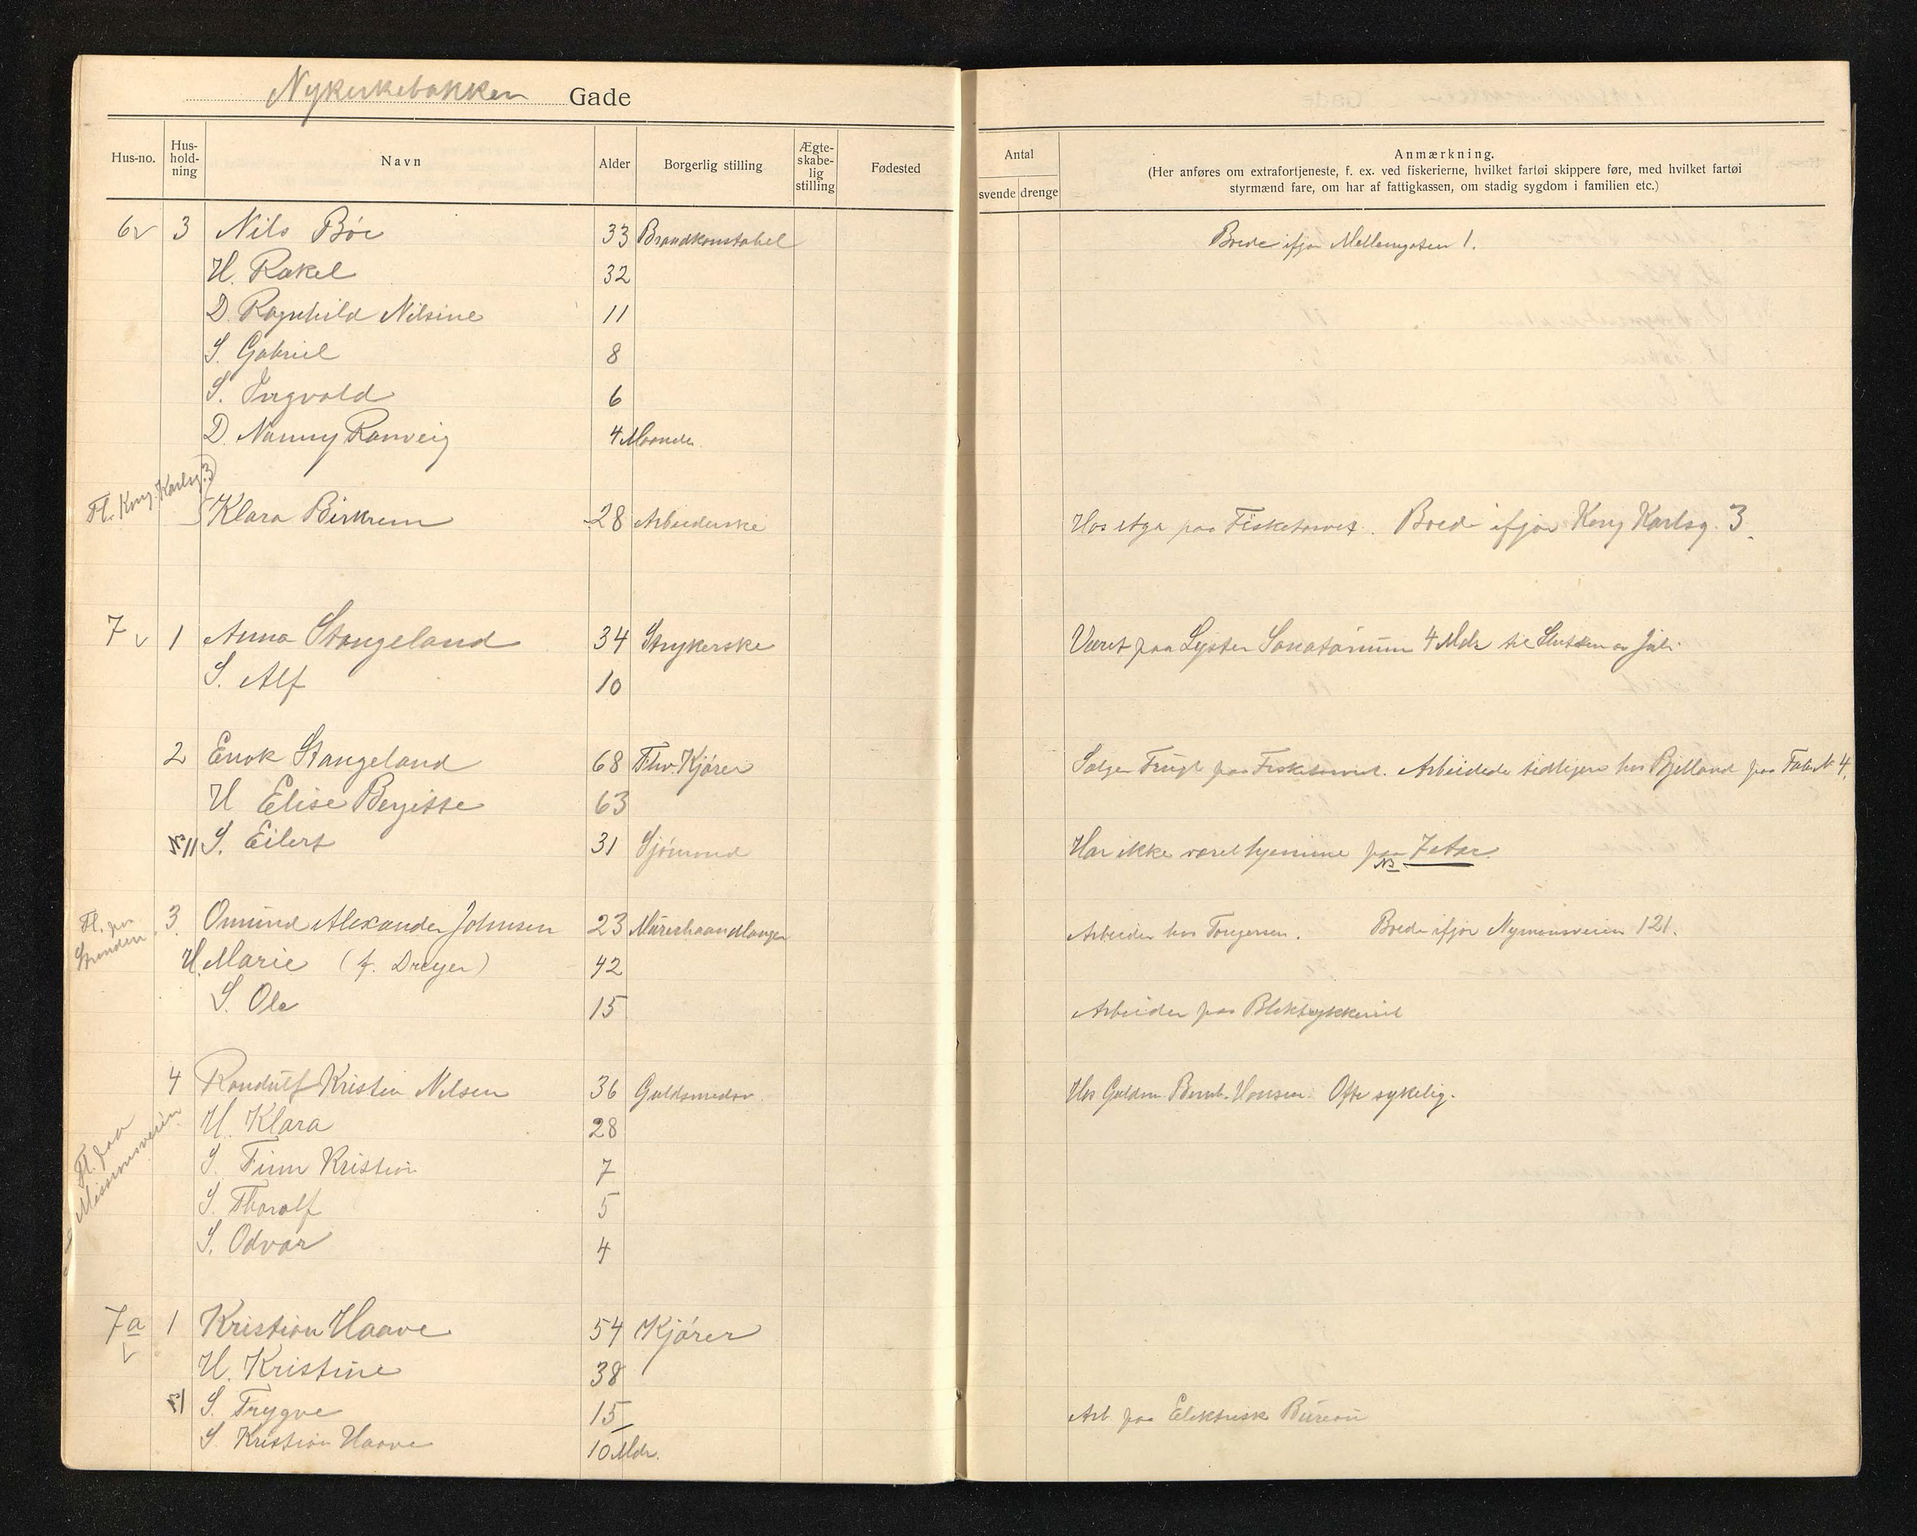 Nykirkebakken Gade
Hus-no. Hus-hold-ning Navn Alder Borgerlig stilling Ægte-skabe-lig stilling Fødested
Antal
svende drenge
Anmærkning.
(Her anføres om extrafortjeneste, f. ex. ved fiskerierne, hvilket fartøi skippere føre, med hvilket fartøi
styrmænd fare, om har af fattigkassen, om stadig sygdom i familien etc.)
6 3 Nils Böe 33 Brandkonstabel Boede ifjor Mellemgaten 1.
H. Rakel 32
D. Ragnhild Nilsine 11
S. Gabriel 8
S. Ingvald 6
D. Nanny Ranveig 4 Maander
Fl. Kong Karlsg. 3
Klara Birkrem 28 Arbeiderske Hos paa Fisketorvet. Boede ifjor Kong Karlsg. 3.
7 1 Anna Stangeland 34 Strykerske Været paa Lyster Sanatorium 4 Mdr til Slutten av Juli.
S. Alf 10
2 Enok Stangeland 68 Fhv. Kjörer Sælger Frugt paa Fisketorvet. Arbeidede tidligere hos Bjelland paa Fabrik 4.
H Elise Bergitte 63
N 11 S. Eilert 31 Sjömand Har ikke været hjemme paa 7 Aar.
NB
Fl. paa Stranden
3. Omund Alexander Johnsen 23 Murerhaandlanger Arbeider hos Torgersen. Boede ifjor Nymansveien 121.
H. Marie (f. Dreyer) 42
S. Ole 15 Arbeider paa Bliktrykkeriet
4 Randulf Kristian Nilsen 36 Guldsmedsv. Hos Guldsm. Bernh. Hansen. Ofte sykelig.
Fl. paa Missionsveien.
H. Klara 28
S. Finn Kristian 7
S. Tharalf 5
S. Odvar 4
7a 1 Kristian Haave 54 Kjörer
H. Kristine 38
S. Trygve 15 Arb. paa Elektrisk Bureau
S Kristian Haave 10 Mdr.